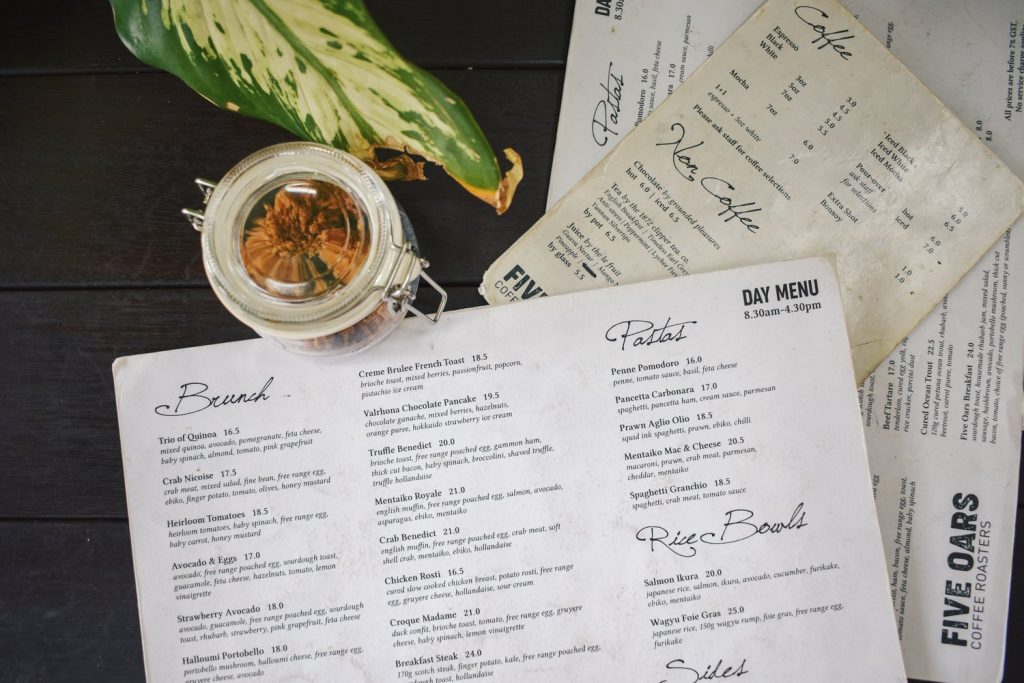 DAY MENU
8.30am-4.30pm
Brunch
Trio of Quinoa 16.5
mixed quinoa, avocado, pomegranate, feta cheese,
baby spinach, almond, tomato, pink grapefruit
Crab Nicoise 17.5
crab meat, mixed salad, fine bean, free range egg,
ebiko, finger potato, tomato, olives, honey mustard
Heirloom Tomatoes 18.5
heirloom tomatoes, baby spinach, free range egg,
baby carrot, honey mustard
Avocado & Eggs 17.0
avocado, free range poached egg, sourdough toast,
guacamole, feta cheese, hazelnuts, tomato, lemon
vinaigrette
Strawberry Avocado 18.0
avocado, guacamole, free range poached egg, sourdough
toast, rhubarb, strawberry, pink grapefruit, feta cheese
Halloumi Portobello 18.0
portobello mushroom, halloumi cheese, free range egg,
gruyere cheese, avocado
Creme Brulee French Toast 18.5
brioche toast, mixed berries, passionfruit, popcorn,
pistachio ice cream
Valrhona Chocolate Pancake 19.5
chocolate ganache, mixed berries, hazelnuts,
orange puree, hokkaido strawberry ice cream
Truffle Benedict 20.0
brioche toast, free range poached egg, gammon ham,
thick cut bacon, baby spinach, broccolini, shaved truffle,
truffle hollandaise
Mentaiko Royale 21.0
english muffin, free range poached egg, salmon, avocado,
asparagus, ebiko, mentaiko
Crab Benedict 21.0
english muffin, free range poached egg, crab meat, soft
shell crab, mentaiko, ebiko, hollandaise
Chicken Rosti 16.5
cured slow cooked chicken breast, potato rosti, free range
egg, gruyere cheese, hollandaise, sour cream
Croque Madame 21.0
duck confit, brioche toast, tomato, free range egg, gruyere
cheese, baby spinach, lemon vinaigrette
Breakfast Steak 24.0
170g scotch steak, finger potato, kale, free range poached egg,
toast, hollandaise
Pastas
Penne Pomodoro 16.0
penne, tomato sauce, basil, feta cheese
Pancetta Carbonara 17.0
spaghetti, pancetta ham, cream sauce, parmesan
Prawn Aglio Olio 18.5
squid ink spaghetti, prawn, ebiko, chilli
Mentaiko Mac & Cheese 20.5
macaroni, prawn, crab meat, parmesan,
cheddar, mentaiko
Spaghetti Granchio 18.5
spaghetti, crab meat, tomato sauce
Rice Bowls
Salmon Ikura 20.0
japanese rice, salmon, ikura, avocado, cucumber, furikake,
ebiko, mentaiko
Wagyu Foie Gras 25.0
japanese rice, 150g wagyu rump, foie gras, free range egg,
furikake
Sides
Coffee
Espresso 3oz 3.0
Black 5oz 4.5
White 7oz 5.5
Mocha 7oz 6.0
1+1 7.0
espresso + 5oz white
Please ask staff for coffee selections
Iced Black 5.0
Iced White 6.5
Iced Mocha
Pour-over hot 6.0
ask staff iced 7.0
for selections
Extra Shot 1.0
Bonsoy 1.0
Non Coffee
Chocolate by grounded pleasures
hot 6.0 | iced 6.5
Tea by the 1872 clipper tea co.
Yunnan Silvertips
by pot 6.5
Juice by the le fruit
by glass 5.5
FIVE
COFFEE
Pastas
All prices are before 7% GST,
No service charge
Beef Tartare 17.0
Cured Ocean Trout 22.5
120g cured petuna ocean trout, beetroot,
beetroot, carrot puree, tomato
Five Oars Breakfast 24.0
sourdough toast, housemade rhubarb jam, mixed salad,
sausage, hashbrown, avocado, portobello mushroom, thick cut
bacon, tomato, choice of free range egg (poached, sunny or scrambled)
FIVE OARS
COFFEE ROASTERS